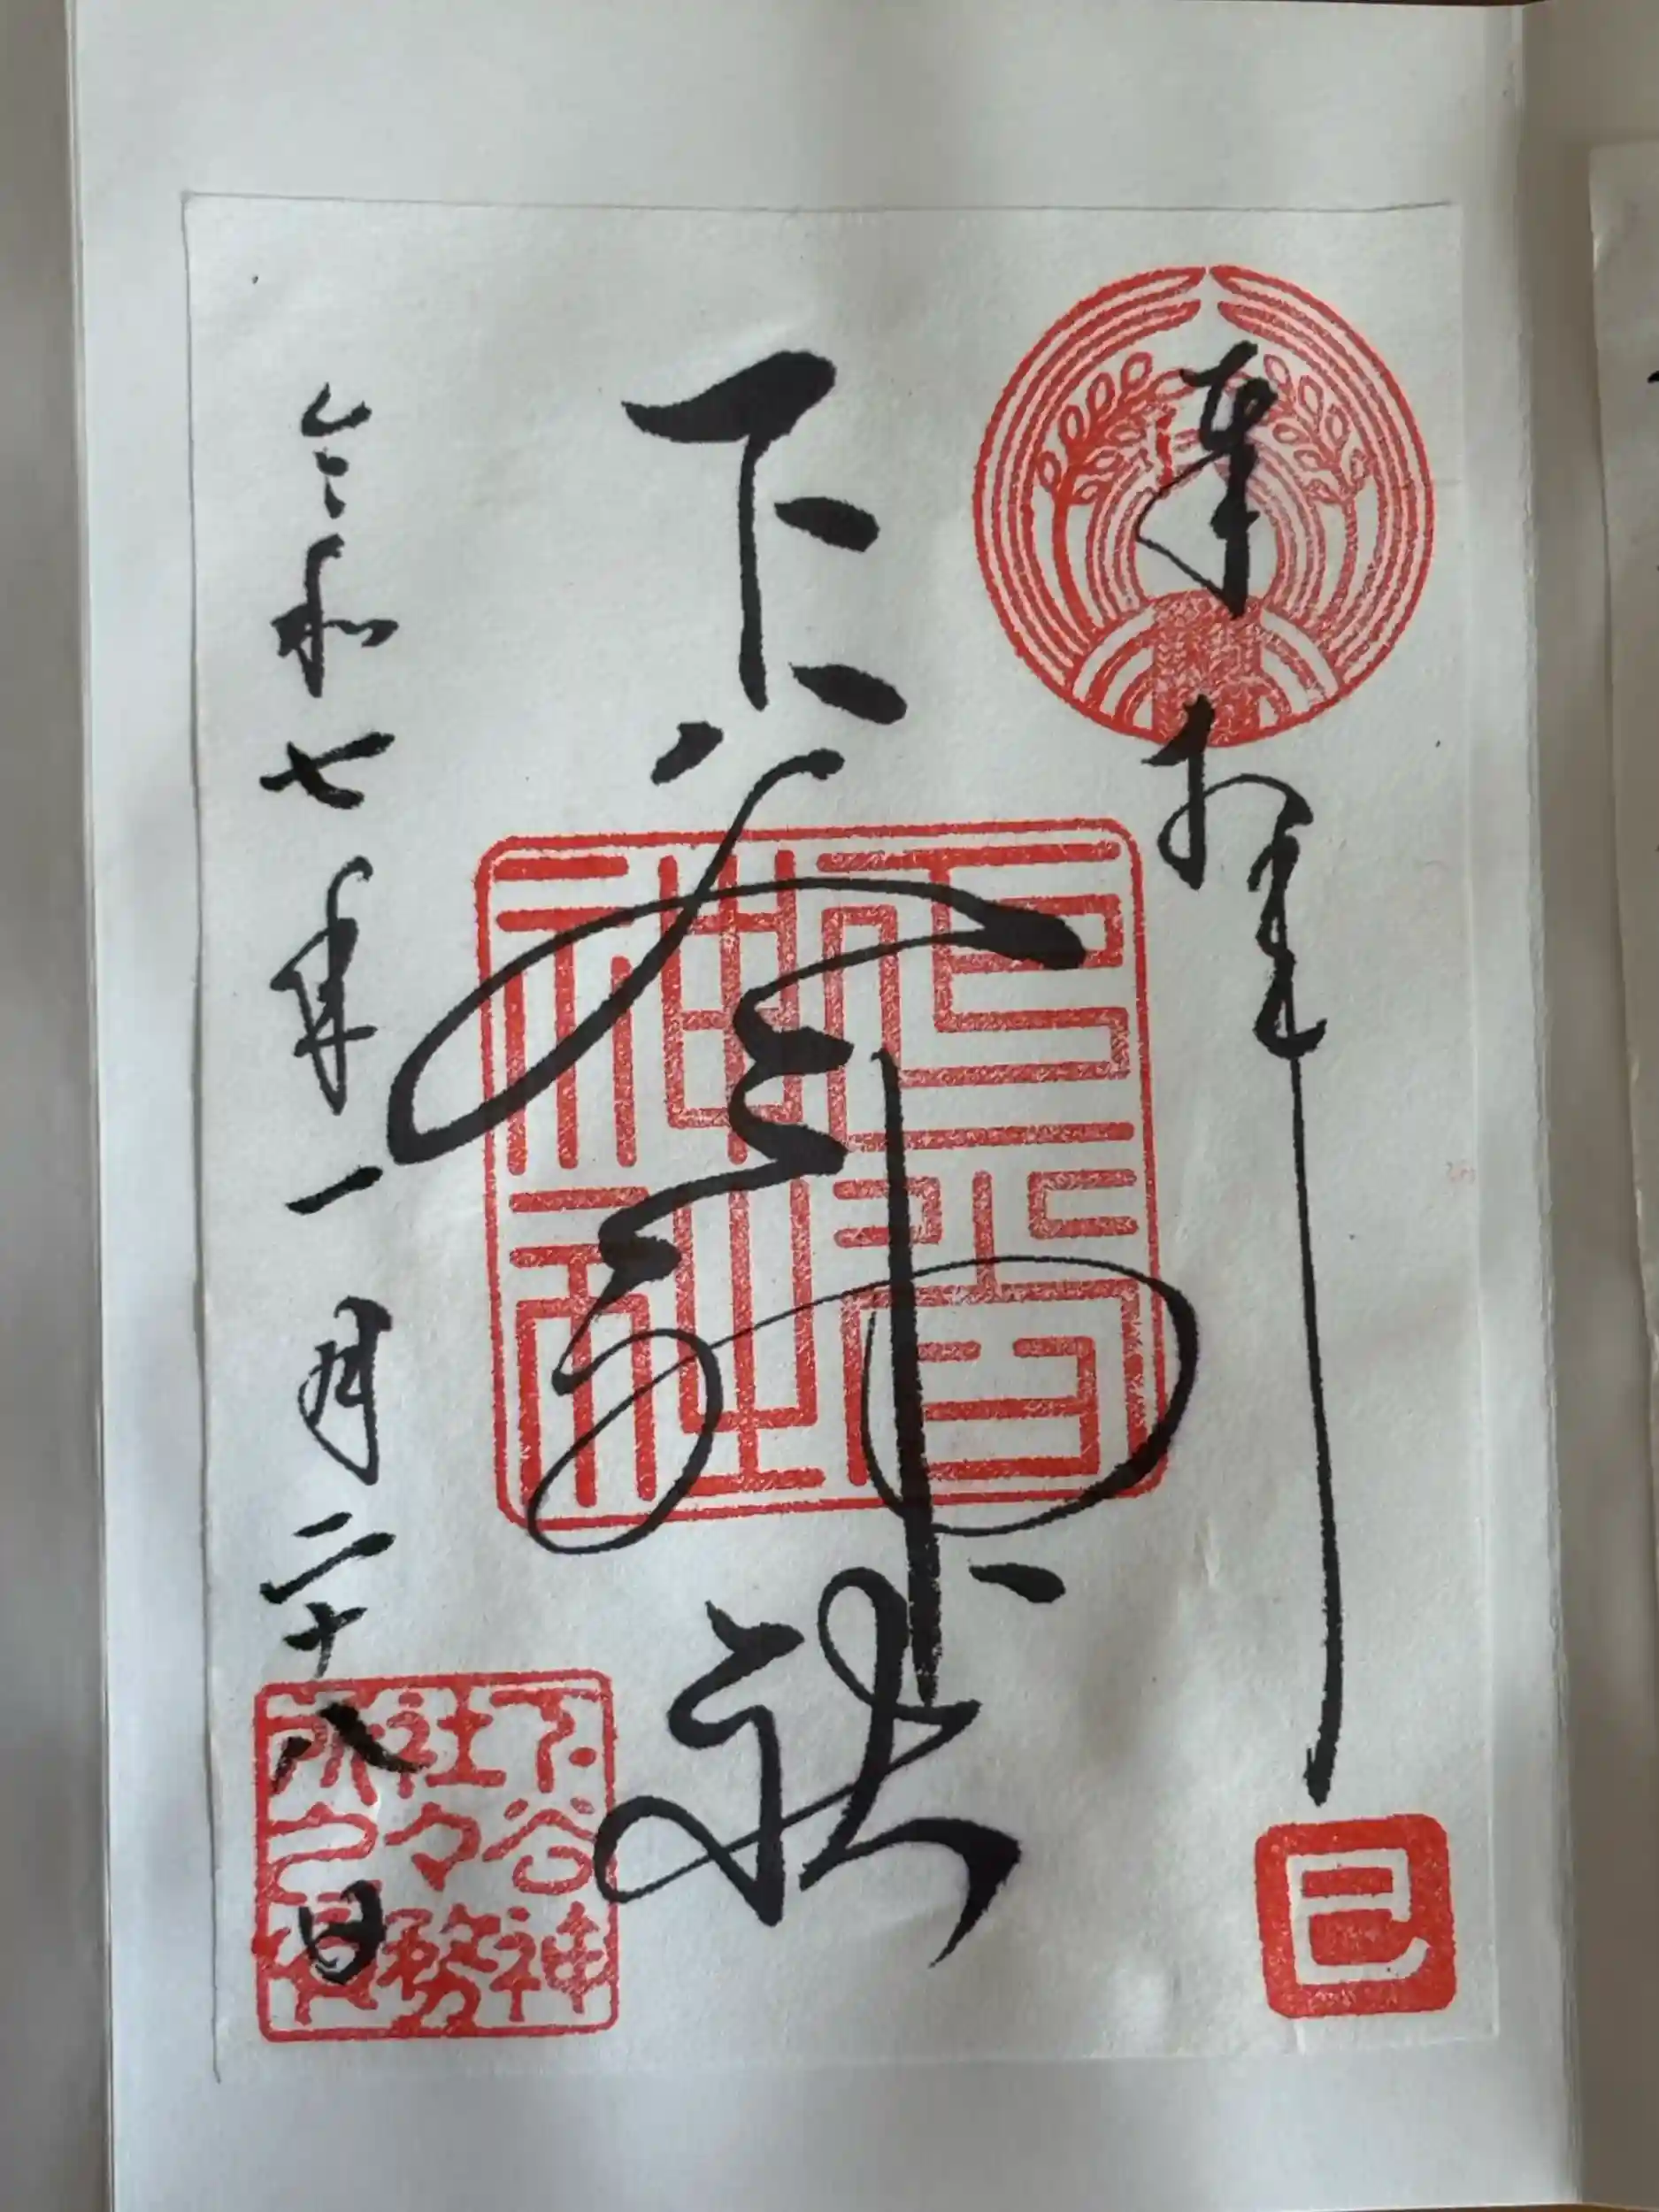 奉拝
巳
下谷神社
令和七年一月二十八日
下谷神
社々務
所之